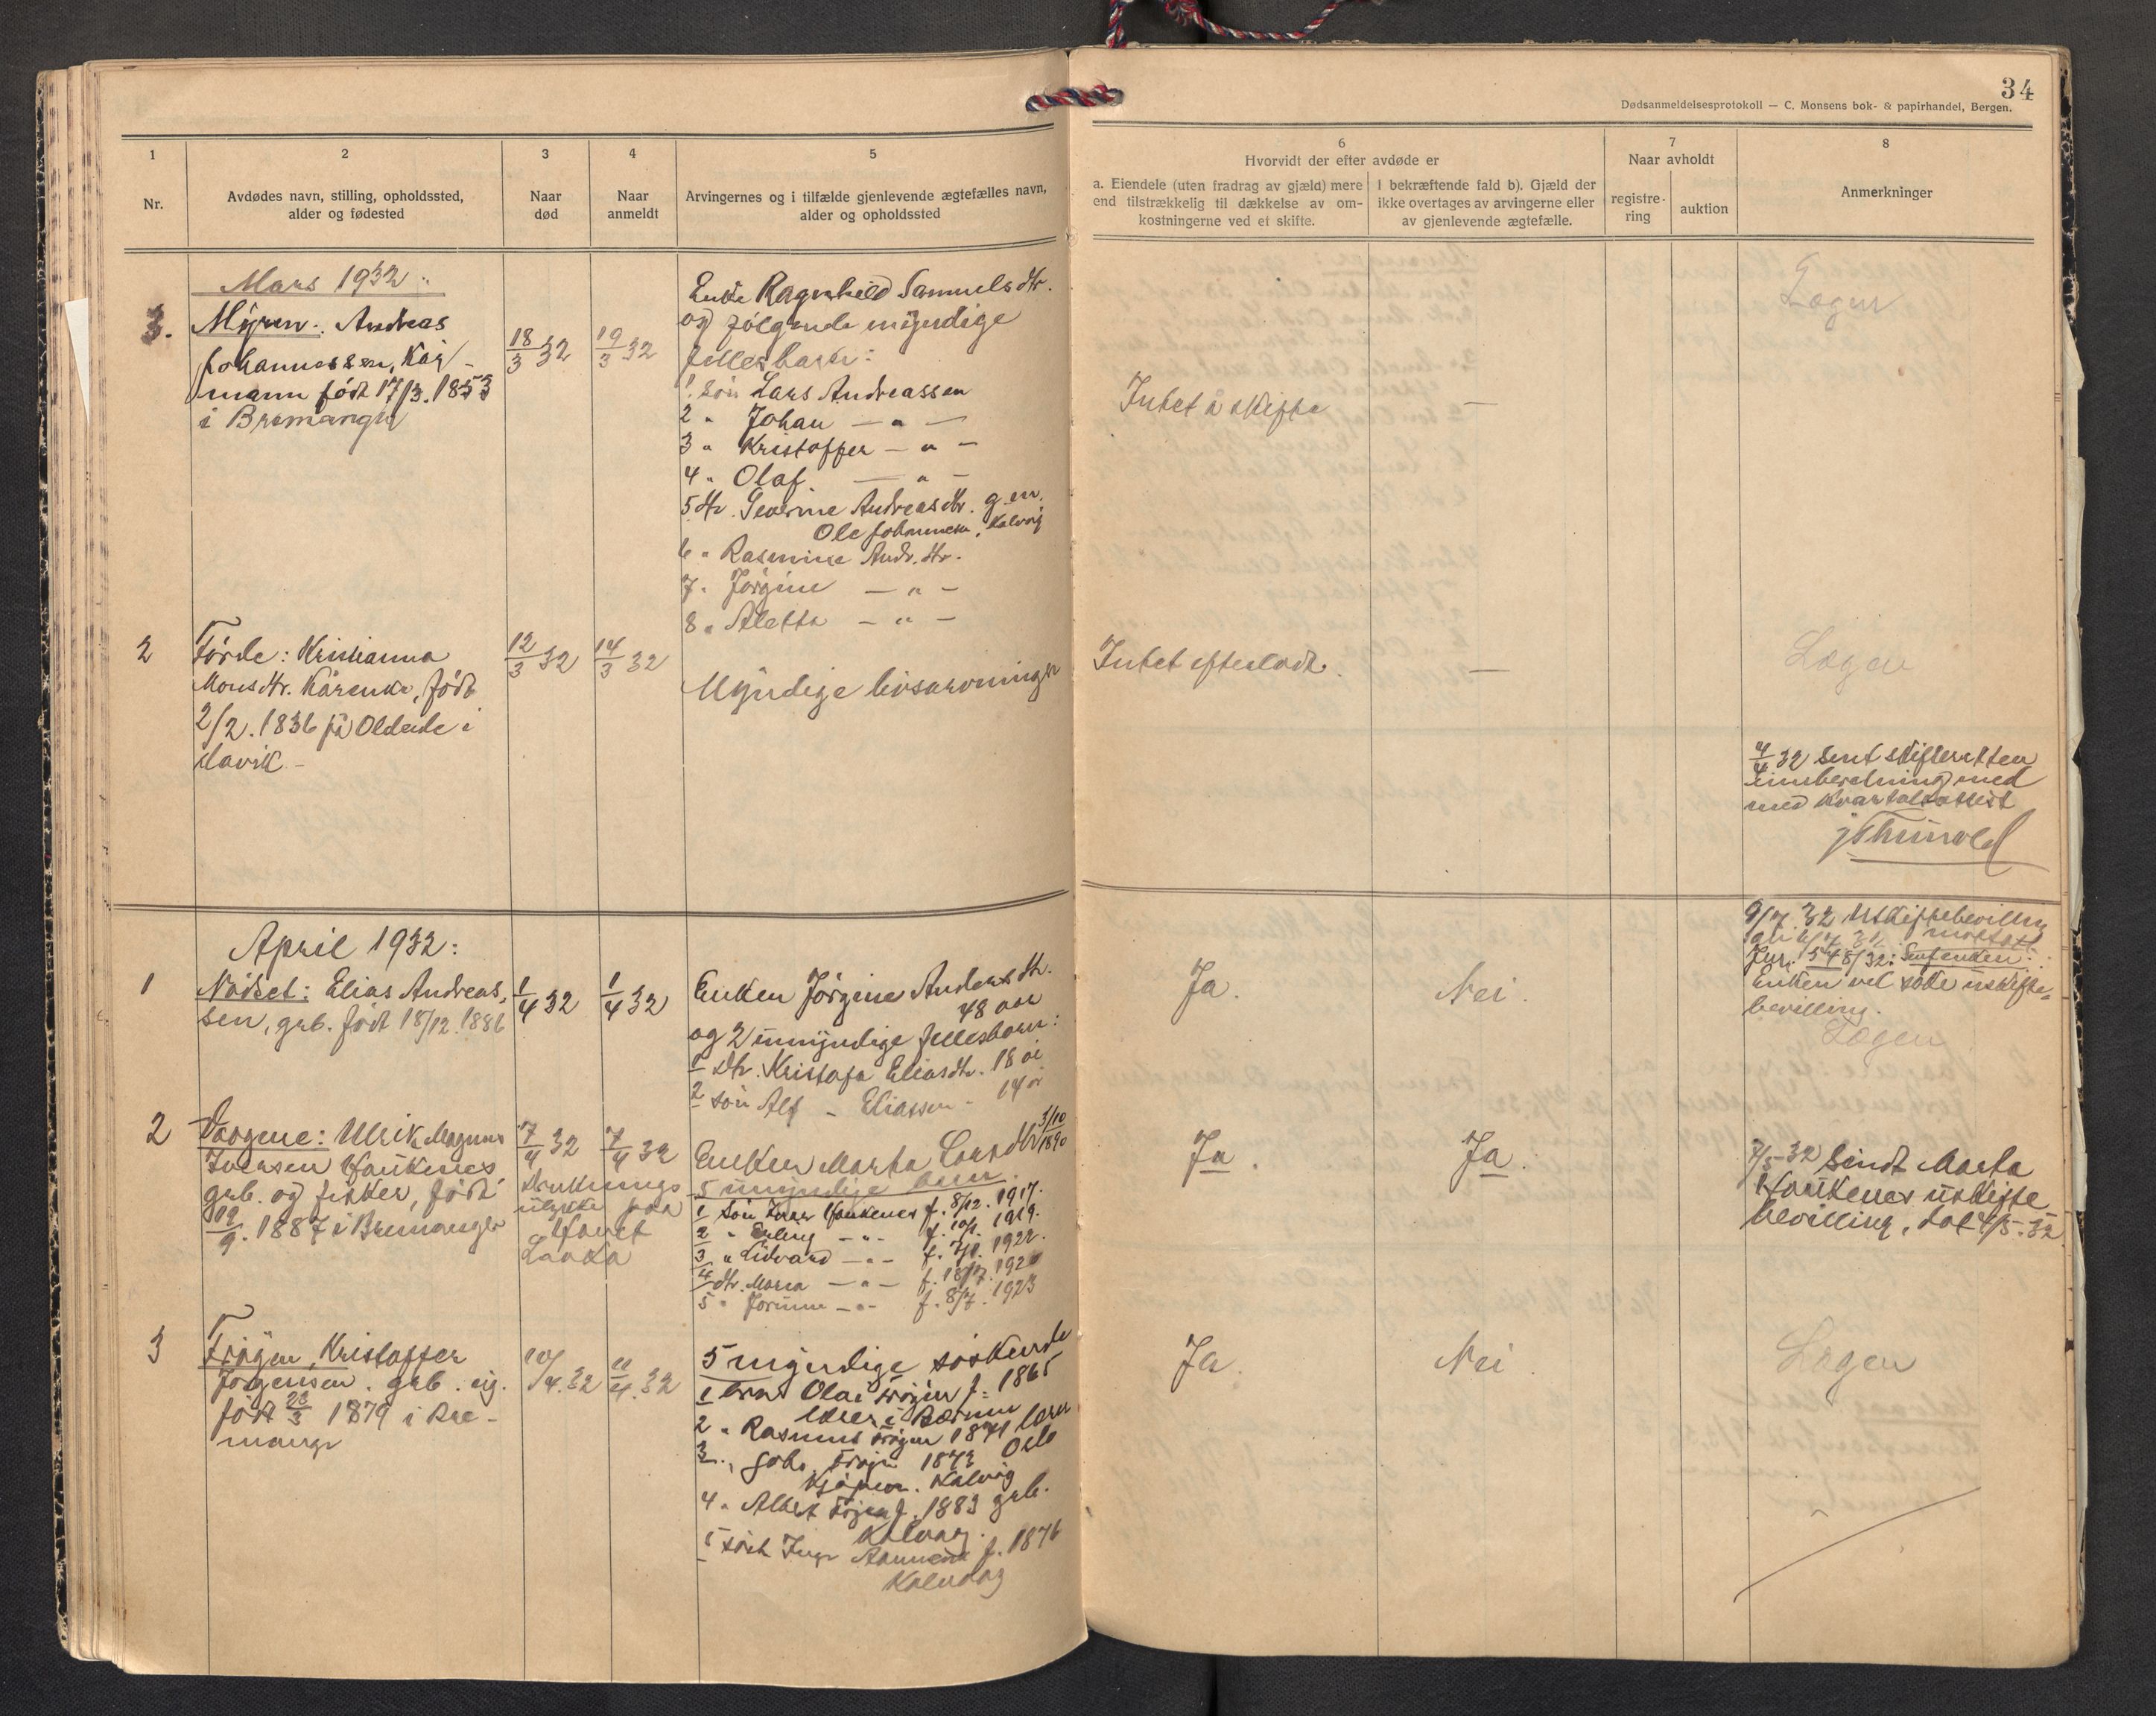 34
Dødsanmeldelsesprotokoll — C. Monsens bok- & papirhandel, Bergen.
1
Nr.
2
Avdødes navn, stilling, opholdssted,
alder og fødested
3
Naar
død
4
Naar
anmeldt
5
Arvingernes og i tilfælde gjenlevende ægtefælles navn,
alder og opholdssted
6
Hvorvidt der efter avdøde er
a. Eiendele (uten fradrag av gjæld) mere
end tilstrækkelig til dækkelse av om-
kostningerne ved et skifte.
I bekræftende fald b). Gjæld der
ikke overtages av arvingerne eller
av gjenlevende ægtefælle.
7
Naar avholdt
registre-
ring
auktion
8
Anmerkninger
Mars 1932:
3.
Myren: Andreas
Johannessen, Kår-
mann født 17/3. 1853
i Bremanger
18/3 32
19/3 32
Enke Ragnhild Samuelsdtr.
og følgende myndige
fellesbarn:
1 Søn Lars Andreassen
2 " Johan — " —
3 " Kristoffer — " —
4 " Olaf — " —
5 dtr. Severine Andreasdtr. g.m.
Ole Johannesen, Kalvåg
6 " Rasmine Andr.dtr.
7 " Jørgine — " —
8 " Aletta — " —
Intet å skifte
—
Lagen
2
Førde: Kristianna
Monsdtr. Kårenke, født
2/2. 1836 på Oldeide i
Davik
12/3 32
14/3 32
Myndige livsarvinger
Intet efterladt.
—
Lagen
4/4 32 sent skifteretten
innberetning med
med kvartalsattest
April 1932:
1
Nødset: Elias Andreas-
sen, grb. født 18/12. 1886
1/4 32
1/4 32
Enken Jørgine Andersdtr.
48 aar
og 2 umyndige fellesbarn:
1 Dtr. Kristofa Eliasdtr. 18 år
2 søn Alf - Eliassen - 14 år
Ja.
Nei.
9/7. 32 Uskiftebevilling
mottatt
Jur. 548/32:
Enken vil søke uskifte-
bevilling.
Lagen
2
Vaagene: Ulrik Magnus
Iversen Haukenes
grb. og fisker, født
19/9. 1887 i Bremanger
7/4 32
7/4 32
Druknings
ulykke paa
Havet
Enken Marta Larsdtr 3/10 1890
5 umyndige barn
1 Søn Iver Haukenes f. 8/12. 1917.
2 " Erling — " — 1919.
3 " Lidvard — " — 1922.
4 dtr. Maria — " — f. 18/7. 1920
5 " Jorunn — " — f. 8/7. 1923
Ja.
Ja.
7/5-32 Sendt Marta
Haukenes uskifte
bevilling, dat 4/5-32
3
Frøyen, Kristoffer
Jørgensen. grb. ug.
født 23/3 1879 i Bre-
manger
10/4.32
11/4.32
5 myndige søskende
1 bror Olai Frøyen f. 1865
lærer i Bærum
2 " Rasmus Frøyen 1871 lærer
Oslo
3 " Frøyen 1873
Kjøpm. Kalvåg
4 " Albert Frøyen f. 1883 grb.
Kalvaag.
5 søst. f. 1876
Kalvaag
Ja.
Nei
Lagen